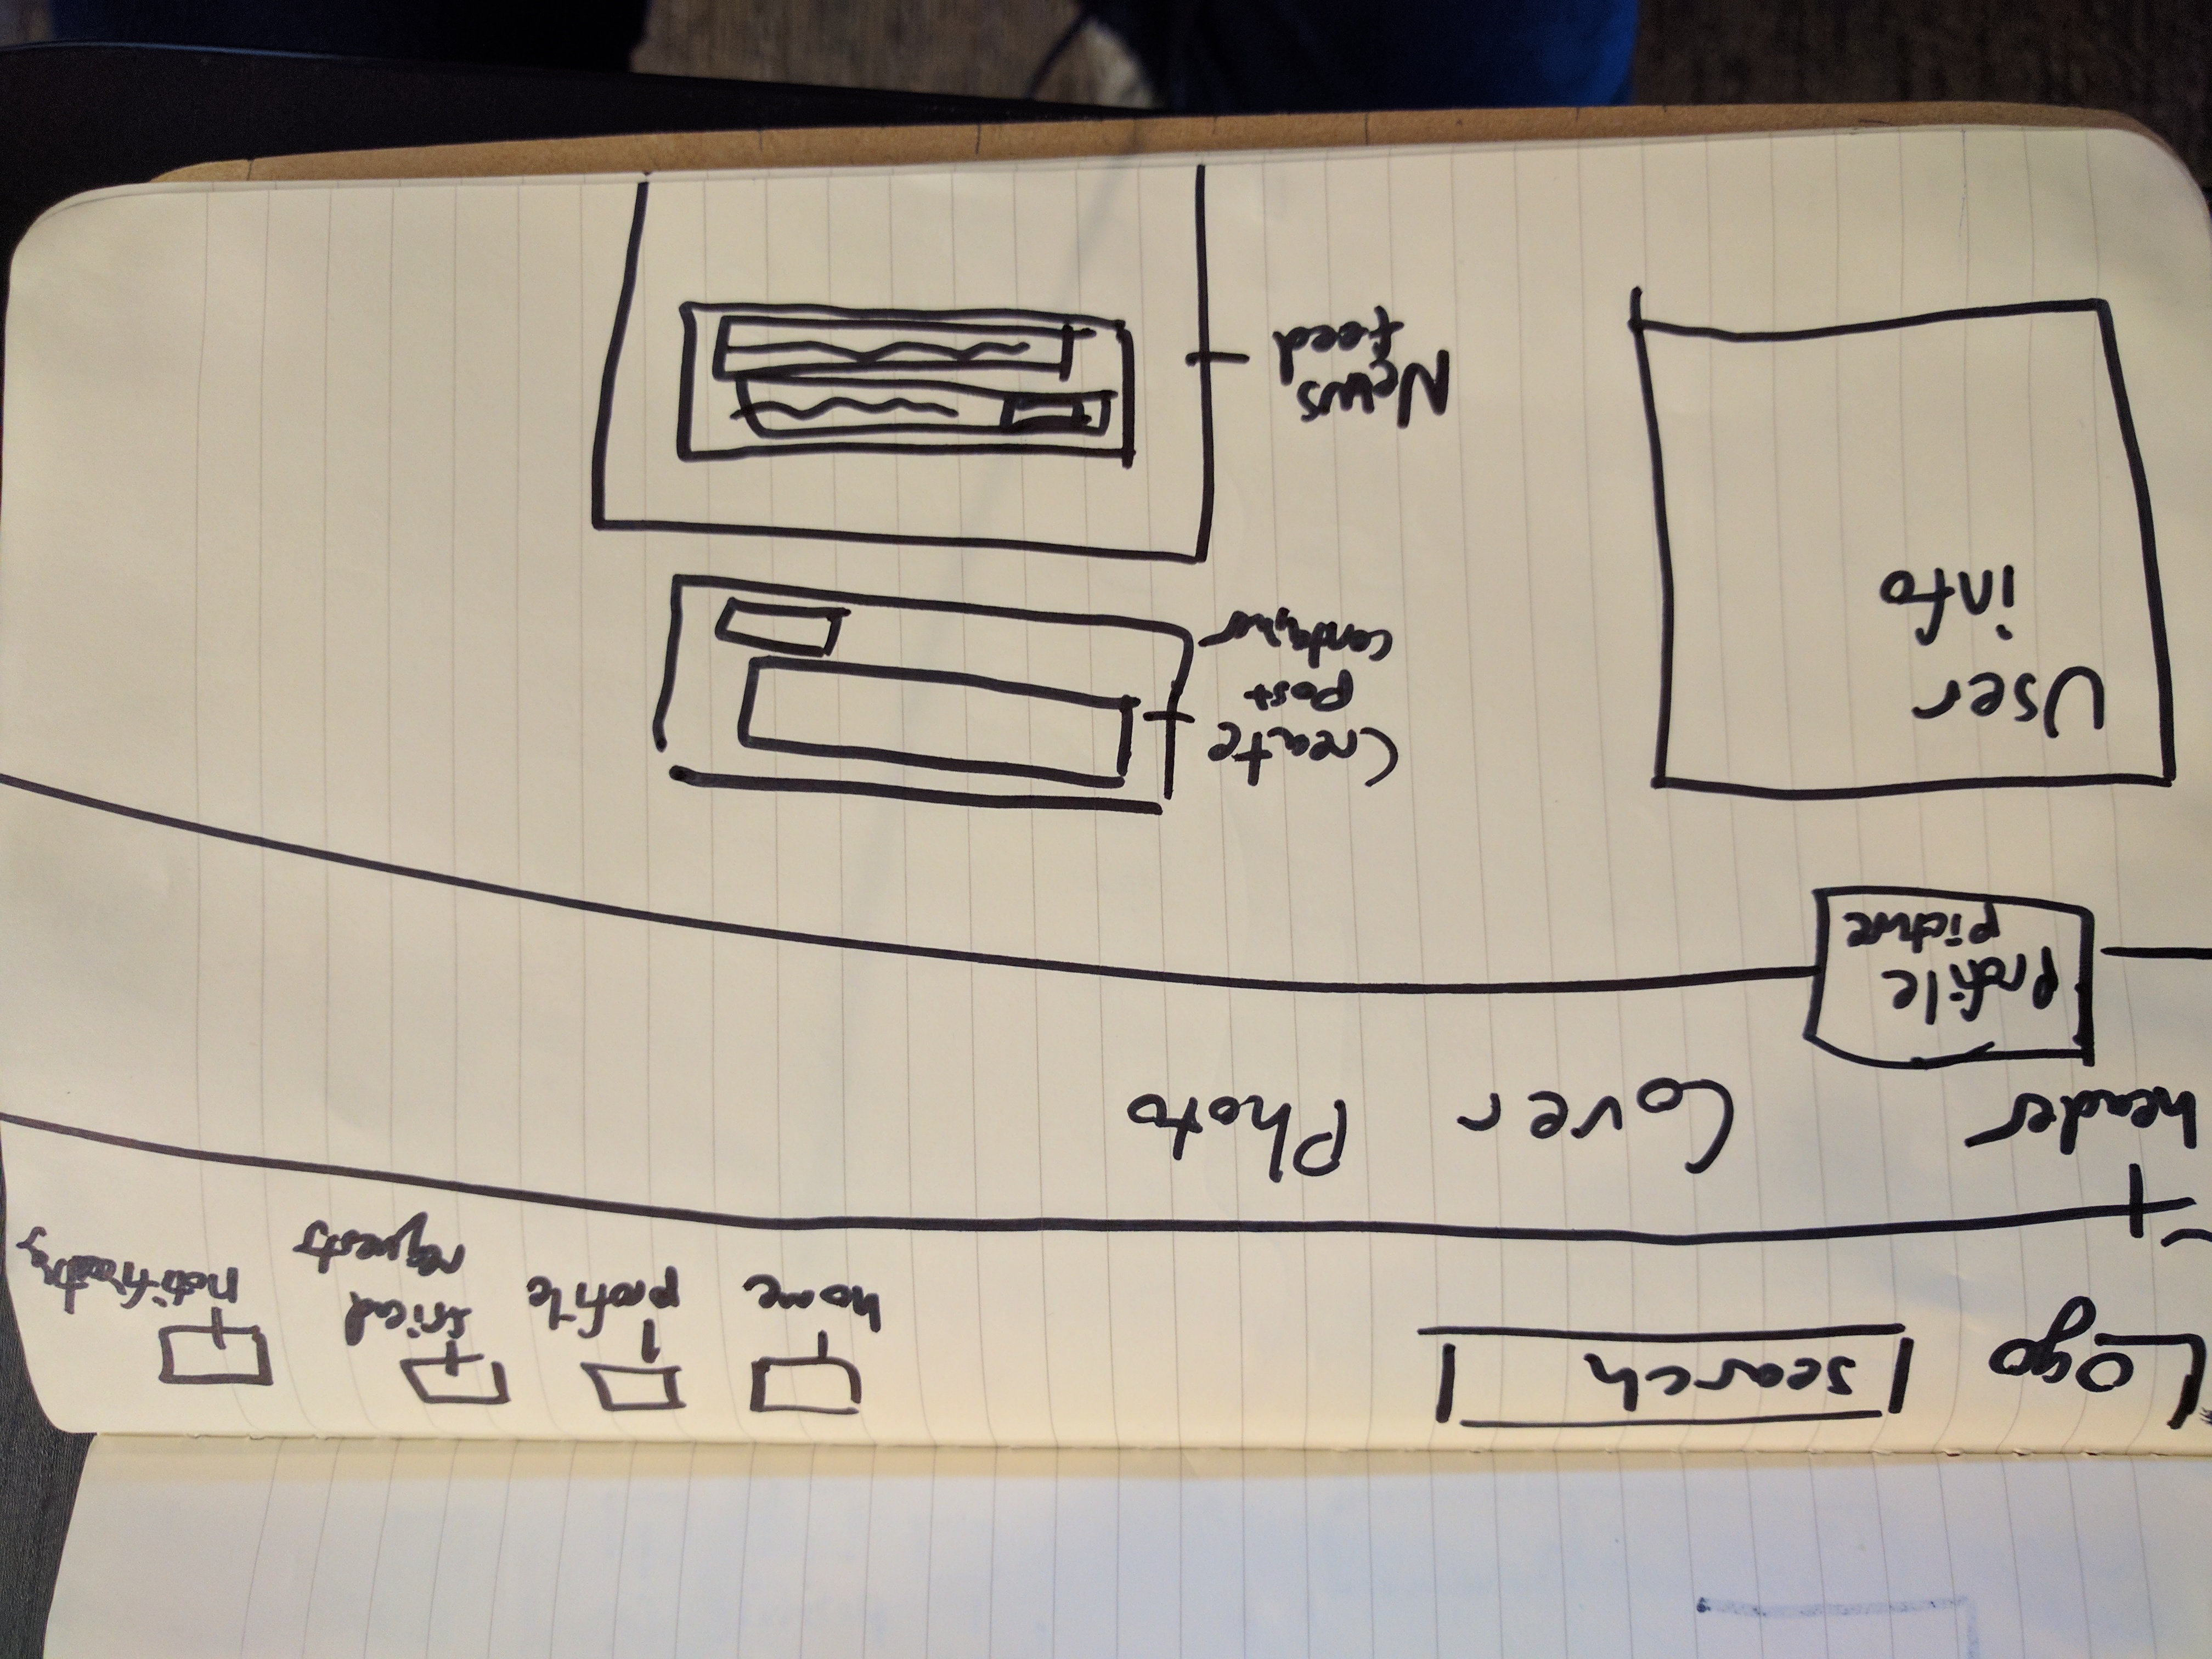 Logo
search
home
profile
friend
requests
header
Cover Photo
Profile
picture
User
info
Create
post
container
News
feed